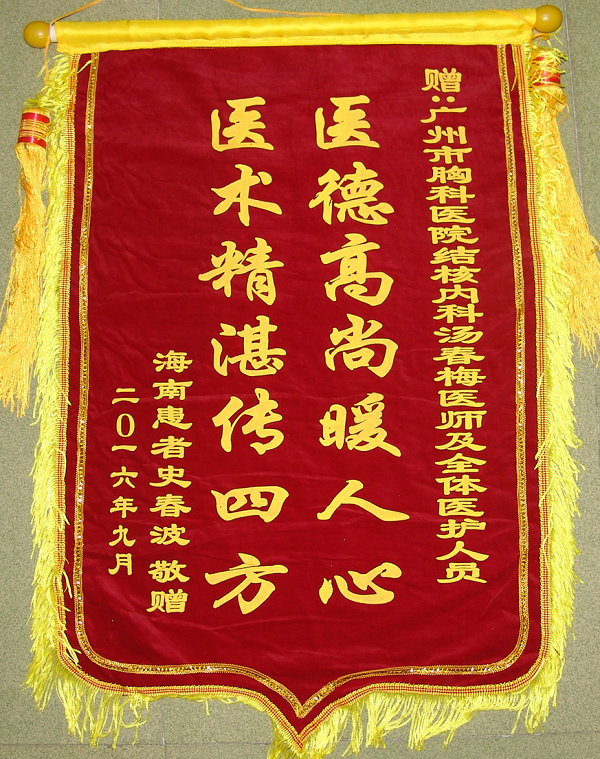 赠:广州市胸科医院结核内科汤春梅医师及全体医护人员
医德高尚暖人心
医术精湛传四方
海南患者史春波 敬赠
二〇一六年九月